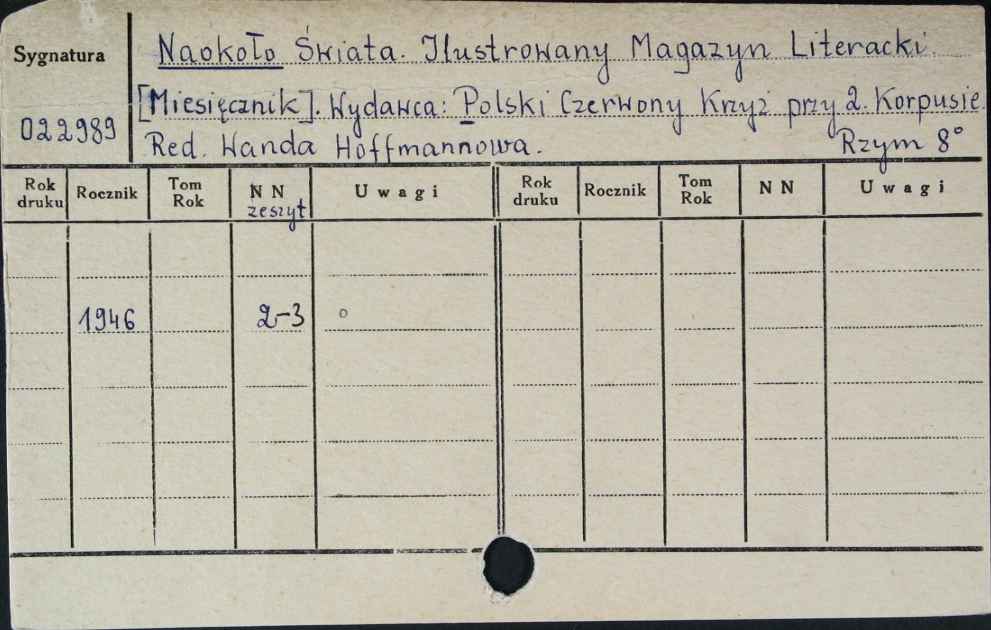 Sygnatura
022989
Naokoło Świata. Ilustrowany Magazyn Literacki.
[Miesięcznik]. Wydawca: Polski Czerwony Krzyż przy 2. Korpusie.
Red. Wanda Hoffmannowa. Rzym 8°
Rok druku Rocznik Tom Rok NN zeszyt Uwagi Rok druku Rocznik Tom Rok NN Uwagi
1946 2-3 o